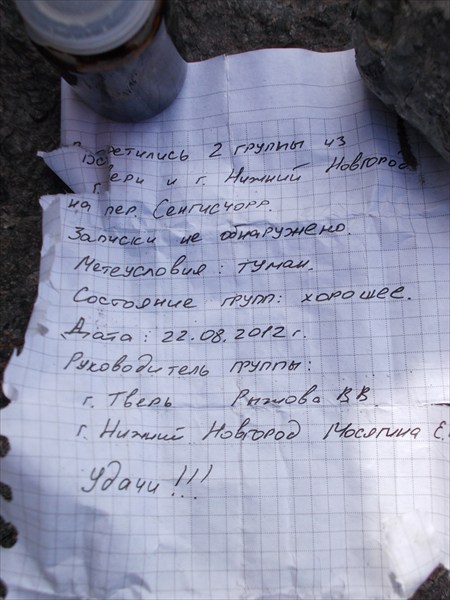 Встретились 2 группы из
г. Твери и г. Нижний Новгород
на пер. Сенгисчорр.
Записки не обнаружено.
Метеусловия: туман.
Состояние групп: хорошее.
Дата: 22.08.2012 г.
Руководитель группы:
г. Тверь Рыжова ВВ
г. Нижний Новгород Мосягина Е.
Удачи!!!